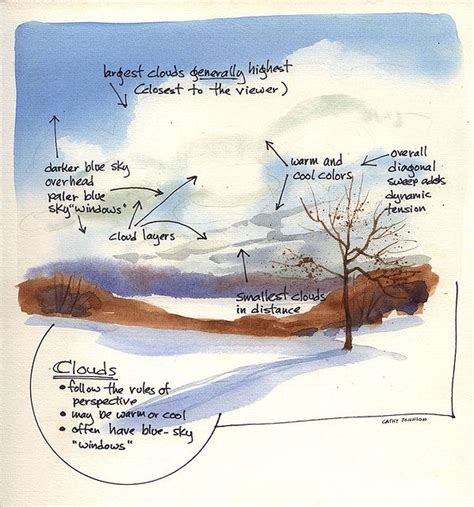 largest clouds generally highest
(closest to the viewer)
darker blue sky
overhead
paler blue
sky "windows"
warm and
cool colors
overall
diagonal
sweep adds
dynamic
tension
cloud layers
smallest clouds
in distance
Clouds
• follow the rules of
perspective
• may be warm or cool
• often have blue-sky
"windows"
CATHY JOHNSON